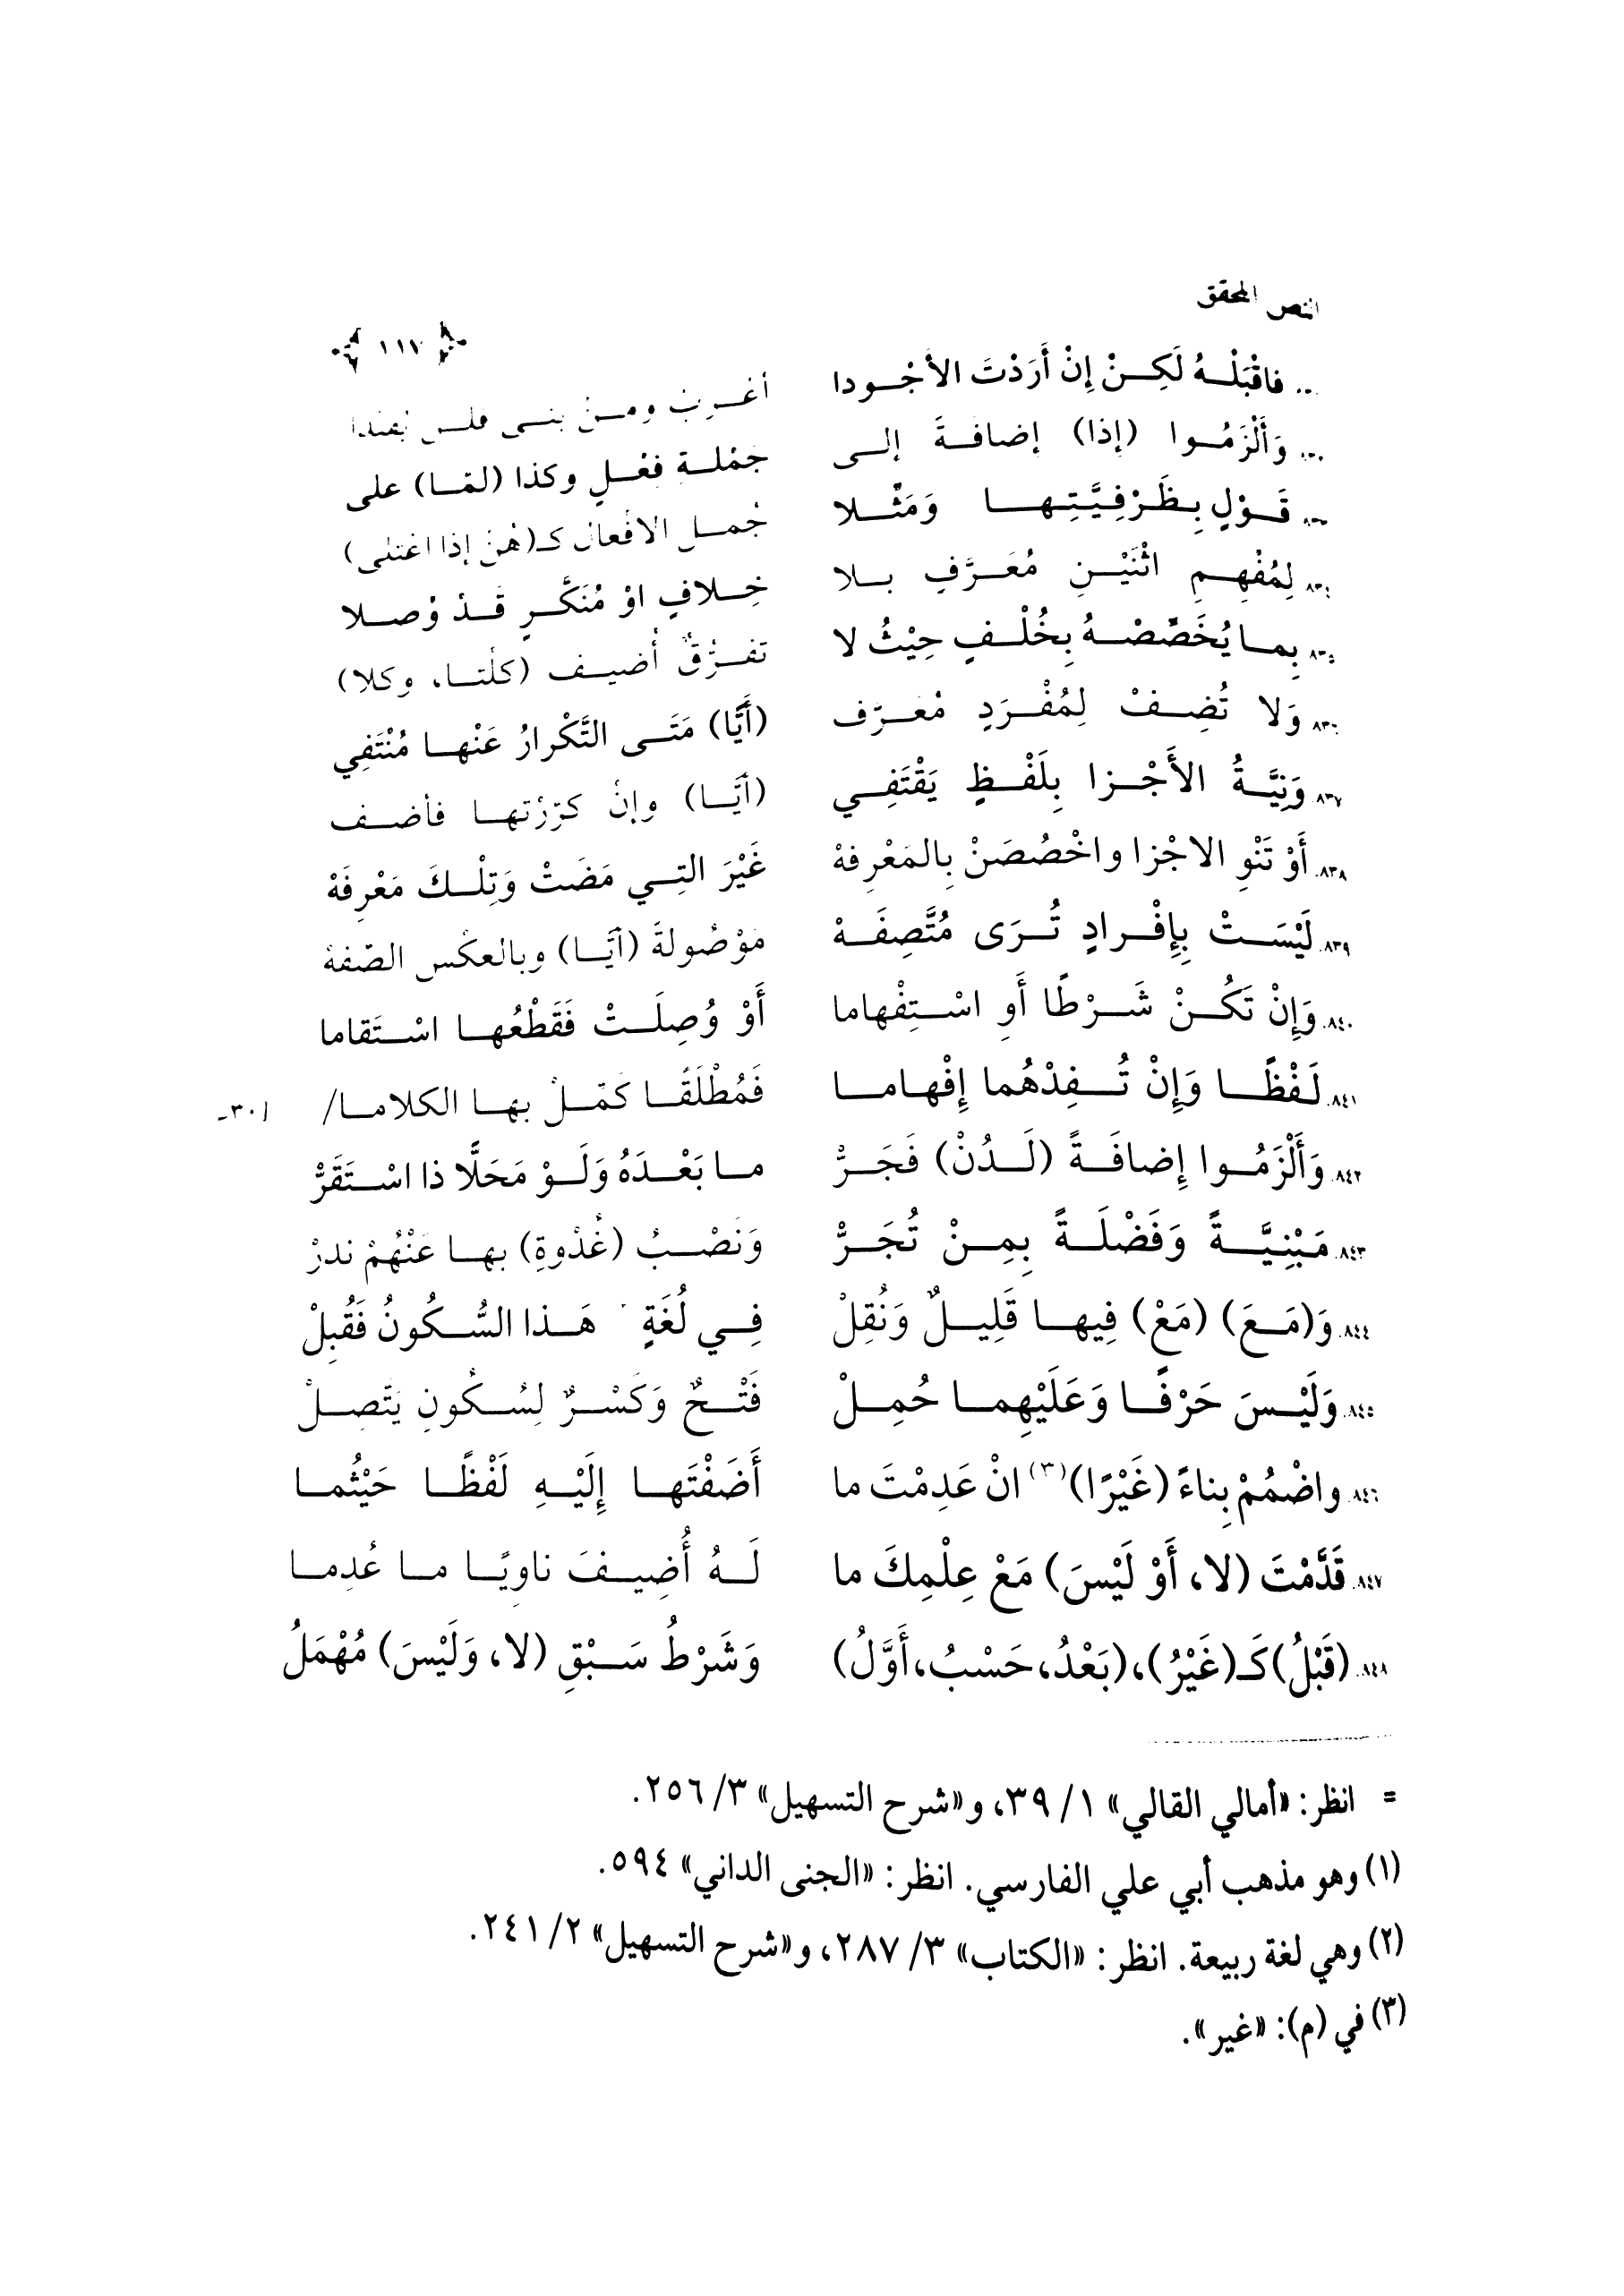 النص المحقق
١١٧
فاقْبَلْهُ لَكِنْ إِنْ أَرَدْتَ الأجْودا أعْرِبْ ومنْ بنى فلن يُفنّدا
وَأَلْزَمُوا (إذا) إضافةً إلى جمْلةِ فعْلٍ وكذا (لمّا) على
قَوْلٍ بِظَرْفِيَّتِها وَمَثّلا جُمل الافْعال كـ(هُنْ إذا اعْتلى)
لِمُفْهِمِ اثْنَيْنِ مُعَرَّفٍ بلا خِلافٍ اوْ مُنَكَّرٍ قَدْ وُصلا
بِما يُخَصِّصْهُ بِخُلْفٍ حِيْثُ لا تفرُّقٌ أُضيف (كلْتا، وكلا)
وَلا تُضِفْ لِمُفْرَدٍ مُعرّف (أَيًّا) مَتَى التَّكْرارُ عَنْها مُنْتَفِي
٨٣٧. وَنِيَّةُ الأَجْزا بِلَفْظٍ يَقْتَفِي (أيّا) وإنْ كرّرْتها فأضف
٨٣٨. أَوْ تَنْوِ الاجْزا واخْصُصَنْ بِالمَعْرِفهْ غَيْرَ التِي مَضَتْ وَتِلْكَ مَعْرِفَهْ
٨٣٩. لَيْسَتْ بِإِفْرادٍ تُرَى مُتَّصِفَهْ مَوْصُولةً (أيّا) وبالعكْس الصّفهْ
٨٤٠. وَإِنْ تَكُنْ شَرْطًا أَوِ اسْتِفْهاما أَوْ وُصِلَتْ فَقَطْعُها اسْتَقاما
٨٤١. لَفْظًا وَإِنْ تُفِدْهُما إِفْهاما فَمُطْلَقًا كَمّلْ بها الكلاما/ /٣٠-
٨٤٢. وَأَلْزَمُوا إِضافَةً (لَدُنْ) فَجَرّْ ما بَعْدَهُ وَلَوْ مَحَلًّا ذا اسْتَقَرّْ
٨٤٣. مَبْنِيَّةً وَفَضْلَةً بِمِنْ تُجَرّْ وَنَصْبُ (غُدْوةٍ) بها عَنْهُمْ ندرْ
٨٤٤. وَ(مَعَ) (مَعْ) فِيها قَلِيلٌ وَنُقِلْ فِي لُغَةٍ هَذا السُّكُونُ فَقُبِلْ
٨٤٥. وَلَيْسَ حَرْفًا وَعَلَيْهِما حُمِلْ فَتْحٌ وَكَسْرٌ لِسُكُونٍ يَتّصِلْ
٨٤٦. واضْمُمْ بِناءً (غَيْرًا)(٣) انْ عَدِمْتَ ما أَضَفْتَها إِلَيْهِ لَفْظًا حَيْثُما
٨٤٧. قَدَّمْتَ (لا، أَوْ لَيْسَ) مَعْ عِلْمِكَ ما لَهُ أُضِيفَ ناوِيًا ما عُدِما
٨٤٨. (قَبْلُ) كَـ(غَيْرُ)، (بَعْدُ، حَسْبُ، أَوَّلُ) وَشَرْطُ سَبْقِ (لا، وَلَيْسَ) مُهْمَلُ
= انظر: «أمالي القالي» ١/ ٣٩، و«شرح التسهيل» ٣/ ٢٥٦.
(١) وهو مذهب أبي علي الفارسي. انظر: «الجنى الداني» ٥٩٤.
(٢) وهي لغة ربيعة. انظر: «الكتاب» ٣/ ٢٨٧، و«شرح التسهيل» ٢/ ٢٤١.
(٣) في (م): «غير».